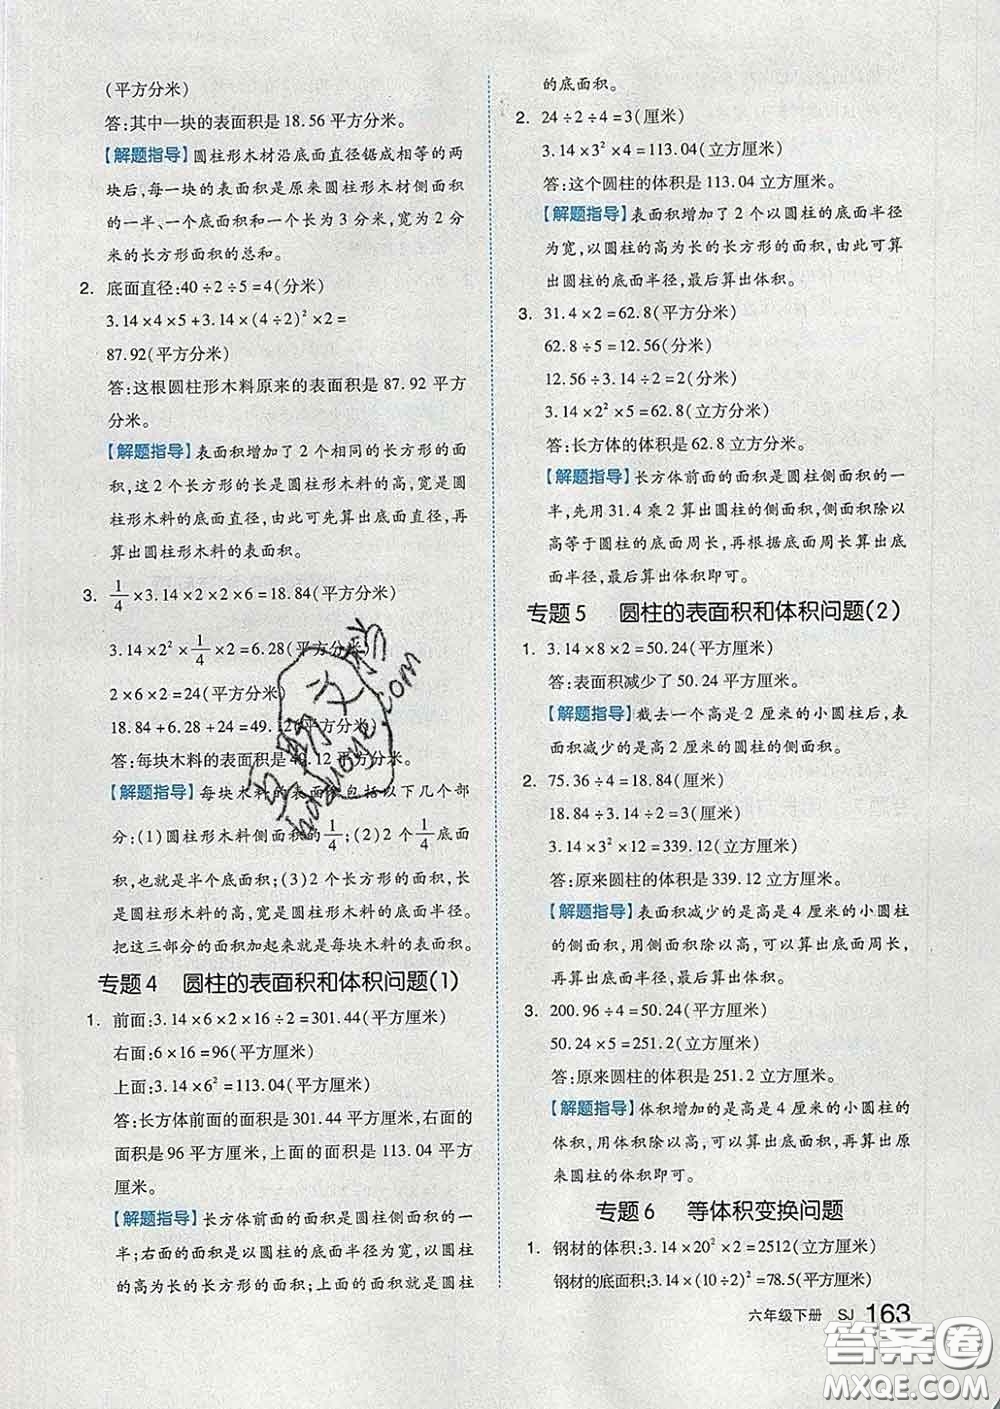 (平方分米)
答:其中一块的表面积是18.56平方分米。
【解题指导】圆柱形木材沿底面直径锯成相等的两
块后,每一块的表面积是原来圆柱形木材侧面积
的一半、一个底面积和一个长为3分米,宽为2分
米的长方形面积的总和。
2. 底面直径:40÷2÷5=4(分米)
3.14×4×5+3.14×(4÷2)²×2=
87.92(平方分米)
答:这根圆柱形木料原来的表面积是87.92平方
分米。
【解题指导】表面积增加了2个相同的长方形的面
积,这2个长方形的长是圆柱形木料的高,宽是圆
柱形木料的底面直径,由此可先算出底面直径,再
算出圆柱形木料的表面积。
3. 1/4×3.14×2×2×6=18.84(平方分米)
3.14×2²×1/4×2=6.28(平方分米)
2×6×2=24(平方分米)
18.84+6.28+24=49.12(平方分米)
答:每块木料的表面积是49.12平方分米。
【解题指导】每块木料的表面积包括以下几个部
分:(1)圆柱形木料侧面积的1/4;(2)2个1/4底面
积,也就是半个底面积;(3)2个长方形的面积,长
是圆柱形木料的高,宽是圆柱形木料的底面半径。
把这三部分的面积加起来就是每块木料的表面积。
专题4 圆柱的表面积和体积问题(1)
1. 前面:3.14×6×2×16÷2=301.44(平方厘米)
右面:6×16=96(平方厘米)
上面:3.14×6²=113.04(平方厘米)
答:长方体前面的面积是301.44平方厘米,右面的
面积是96平方厘米,上面的面积是113.04平方
厘米。
【解题指导】长方体前面的面积是圆柱侧面积的一
半;右面的面积是以圆柱的底面半径为宽,以圆柱
的高为长的长方形的面积;上面的面积就是圆柱
的底面积。
2. 24÷2÷4=3(厘米)
3.14×3²×4=113.04(立方厘米)
答:这个圆柱的体积是113.04立方厘米。
【解题指导】表面积增加了2个以圆柱的底面半径
为宽,以圆柱的高为长的长方形的面积,由此可算
出圆柱的底面半径,最后算出体积。
3. 31.4×2=62.8(平方分米)
62.8÷5=12.56(分米)
12.56÷3.14÷2=2(分米)
3.14×2²×5=62.8(立方分米)
答:长方体的体积是62.8立方分米。
【解题指导】长方体前面的面积是圆柱侧面积的一
半,先用31.4乘2算出圆柱的侧面积,侧面积除以
高等于圆柱的底面周长,再根据底面周长算出底
面半径,最后算出体积即可。
专题5 圆柱的表面积和体积问题(2)
1. 3.14×8×2=50.24(平方厘米)
答:表面积减少了50.24平方厘米。
【解题指导】截去一个高是2厘米的小圆柱后,表
面积减少的是高2厘米的圆柱的侧面积。
2. 75.36÷4=18.84(厘米)
18.84÷3.14÷2=3(厘米)
3.14×3²×12=339.12(立方厘米)
答:原来圆柱的体积是339.12立方厘米。
【解题指导】表面积减少的是高是4厘米的小圆柱
的侧面积,用侧面积除以高,可以算出底面周长,
再算出底面半径,最后算出体积。
3. 200.96÷4=50.24(平方厘米)
50.24×5=251.2(立方厘米)
答:原来圆柱的体积是251.2立方厘米。
【解题指导】体积增加的是高是4厘米的小圆柱的
体积,用体积除以高,可以算出底面积,再算出原
来圆柱的体积即可。
专题6 等体积变换问题
1. 钢材的体积:3.14×20²×2=2512(立方厘米)
钢材的底面积:3.14×(10÷2)²=78.5(平方厘米)
六年级下册 SJ 163
答案圈
MXQE.COM